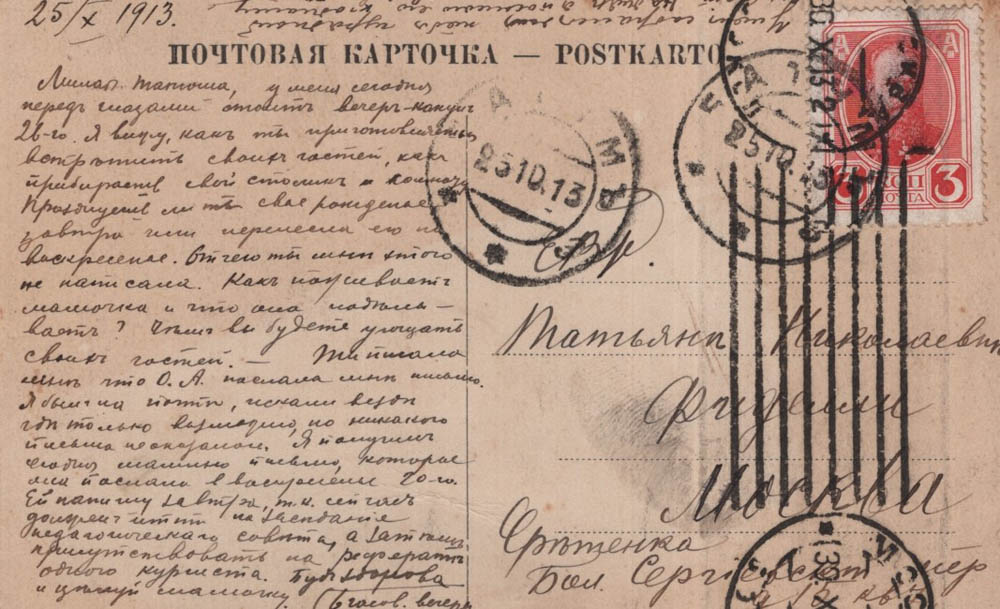 25/X 1913.
ПОЧТОВАЯ КАРТОЧКА — POSTKARTO
Милая Танюша, у меня сегодня
передъ глазами стоитъ вечеръ
26-го. Я вижу, какъ ты приготовляешься
встрѣтить своихъ гостей, какъ
прибираешь свой столикъ и комнату.
Празднуешь ли ты свое рожденіе
завтра или перенесла его на
воскресенье. Отчего ты мнѣ этого
не написала. Какъ поживаетъ
мамочка и что она подѣлы-
ваетъ? Чѣмъ вы будете угощать
своихъ гостей. — Ты писала
мнѣ что О. А. послала мнѣ письмо.
Я былъ на почтѣ, искали вездѣ
гдѣ только возможно, но никакого
письма не оказалось. Я получилъ
сегодня мамино письмо, которое
она послала въ воскресенье 20-го.
Ей напишу завтра, т.к. сейчасъ
долженъ итти на засѣданіе
педагогическаго совѣта, а затѣмъ
присутствовать на рефератѣ
одного курсиста. Будь здорова
и цѣлуй мамочку.
(6 часов. вечера
25 10. 13
25 10. 13
КОП
3
3
Вр.
Татьянѣ Николаевнѣ
Фидлеръ
Москва
Срѣтенка
Бол. Сергіевскій пер